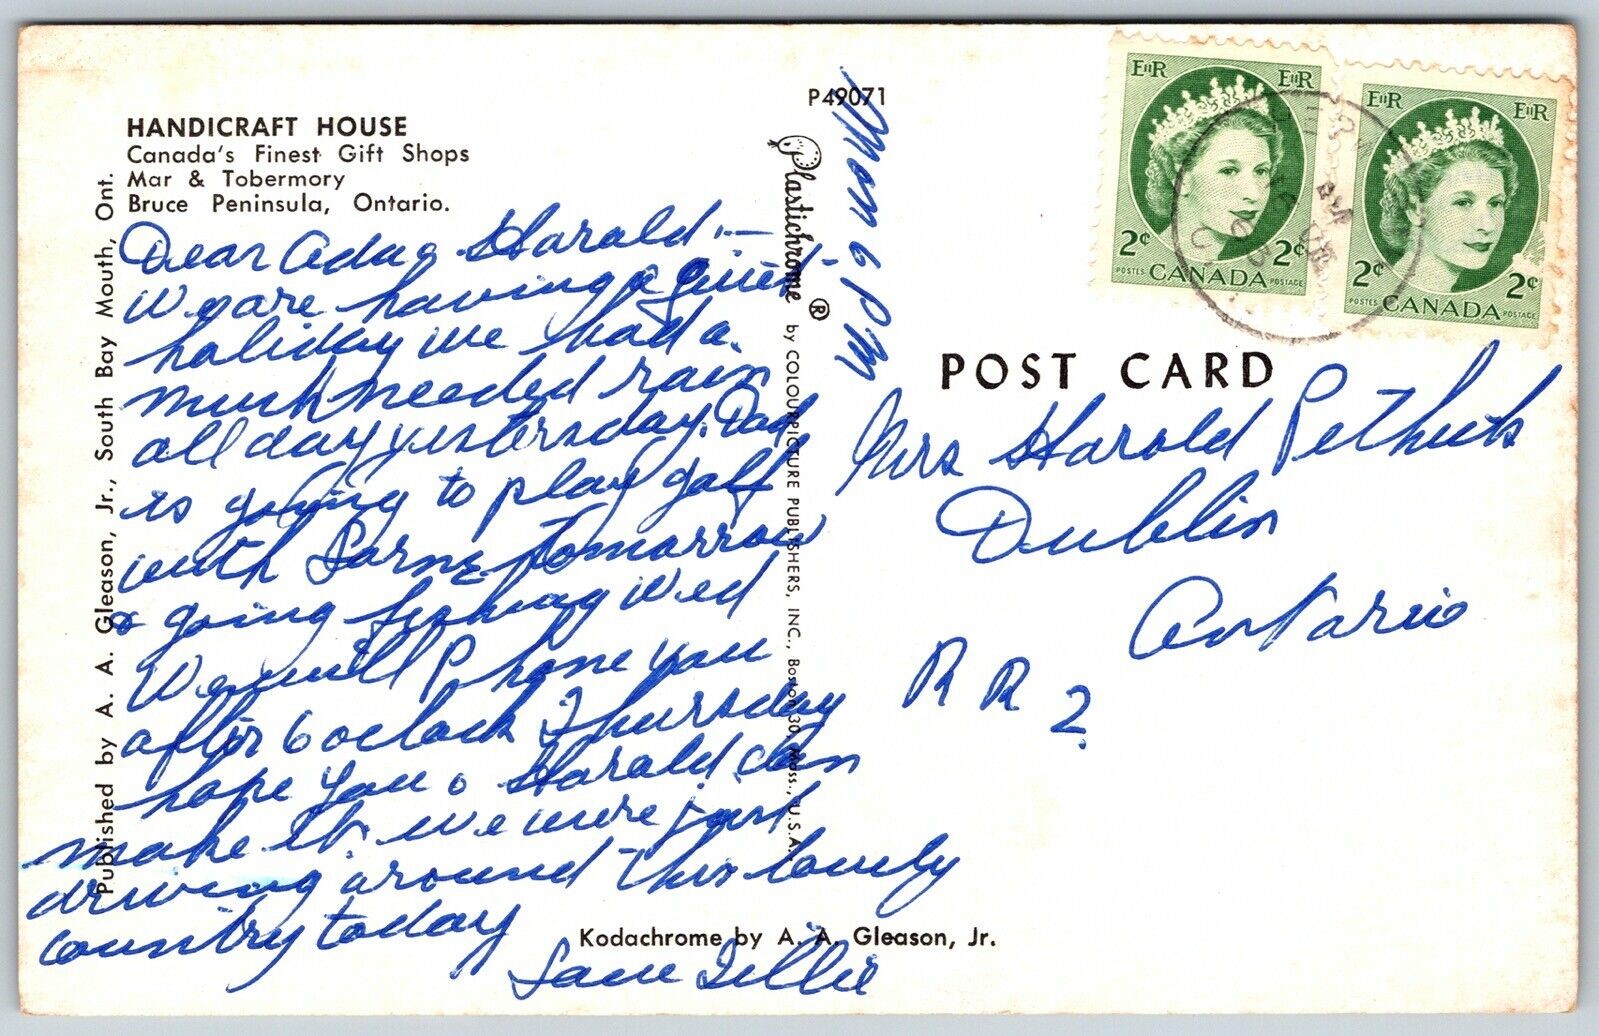 HANDICRAFT HOUSE
Canada's Finest Gift Shops
Mar & Tobermory
Bruce Peninsula, Ontario.
Dear Ada & Harald :—
We are having a quiet
holiday we had a
much needed rain
all day yesterday. Dad
is going to play golf
with Lorne tomorrow
& going fishing Wed
We will Phone you
after 6 oclock Thursday
hope you & Harald can
make it. we were just
driving around this lovely
country today
Love Tillie
Published by A. A. Gleason, Jr., South Bay Mouth, Ont.
P49071
Plastichrome ® by COLOURPICTURE PUBLISHERS, INC., Boston 30, Mass., U.S.A.
Mon 6 PM
Kodachrome by A. A. Gleason, Jr.
EIIR EIIR
2¢ 2¢
POSTES CANADA POSTAGE
EIIR EIIR
2¢ 2¢
POSTES CANADA POSTAGE
POST CARD
Mrs Harold
Dublin
Ontario
R R 2